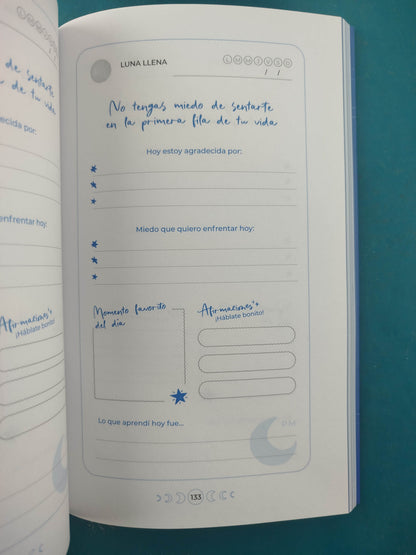 de sentarte
la de tu vida
decida por:
enfrentar hoy:
Afirmaciones
¡Háblate bonito!
LUNA LLENA
L M M J V S D
/ /
No tengas miedo de sentarte
en la primera fila de tu vida
Hoy estoy agradecida por:
Miedo que quiero enfrentar hoy:
Momento favorito
del día
Afirmaciones
¡Háblate bonito!
Lo que aprendí hoy fue...
PM
133